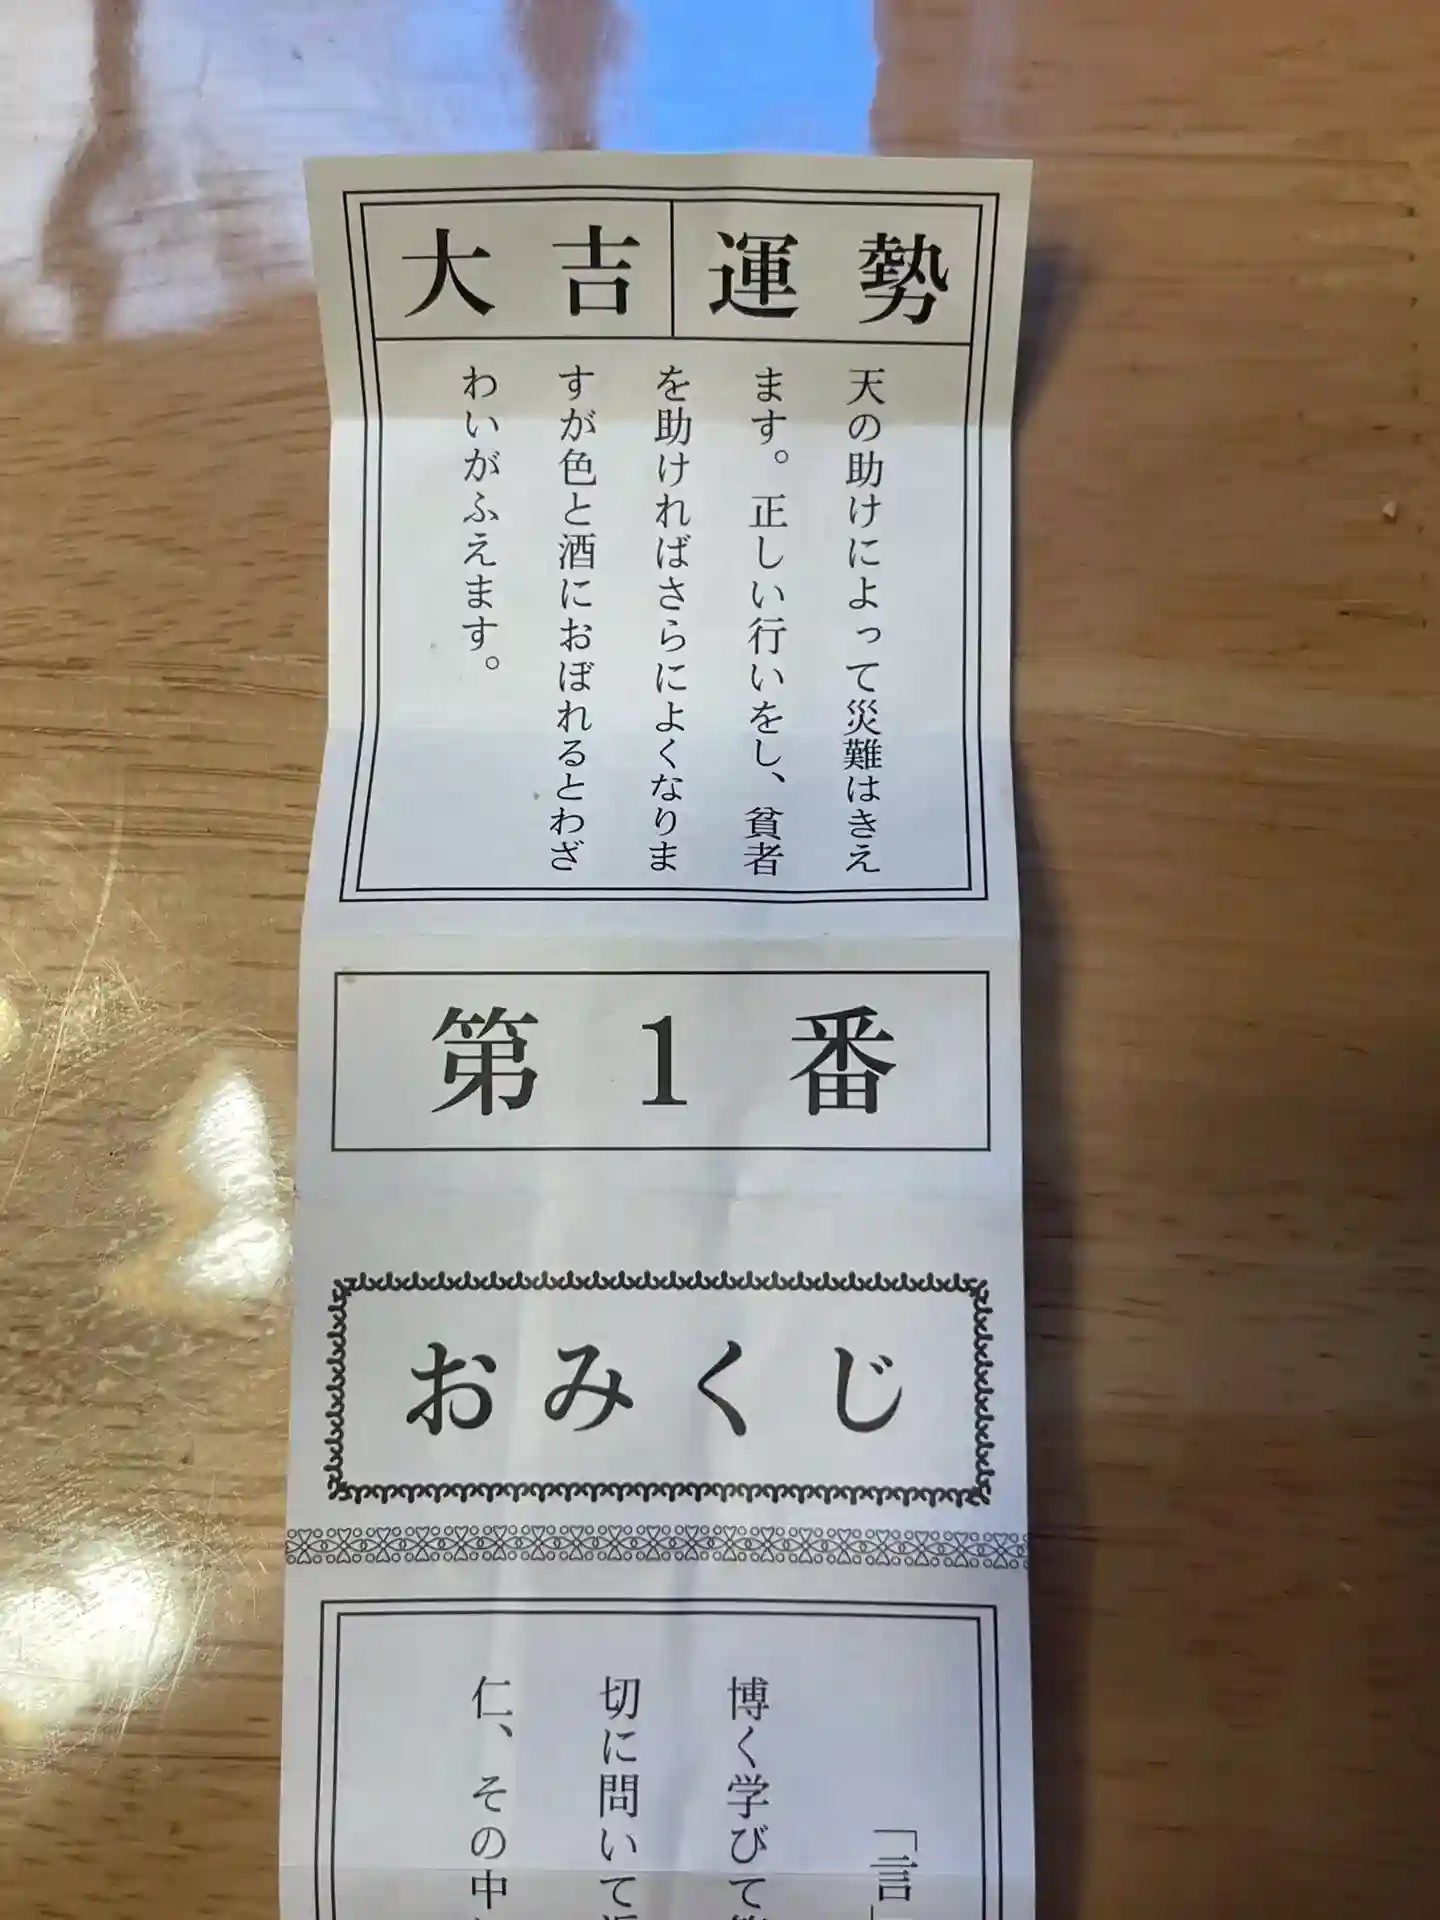 大吉
運勢
天の助けによって災難はきえ
ます。正しい行いをし、貧者
を助ければさらによくなりま
すが色と酒におぼれるとわざ
わいがふえます。
第1番
おみくじ
「言」
博く学びて
切に問いて
仁、その中